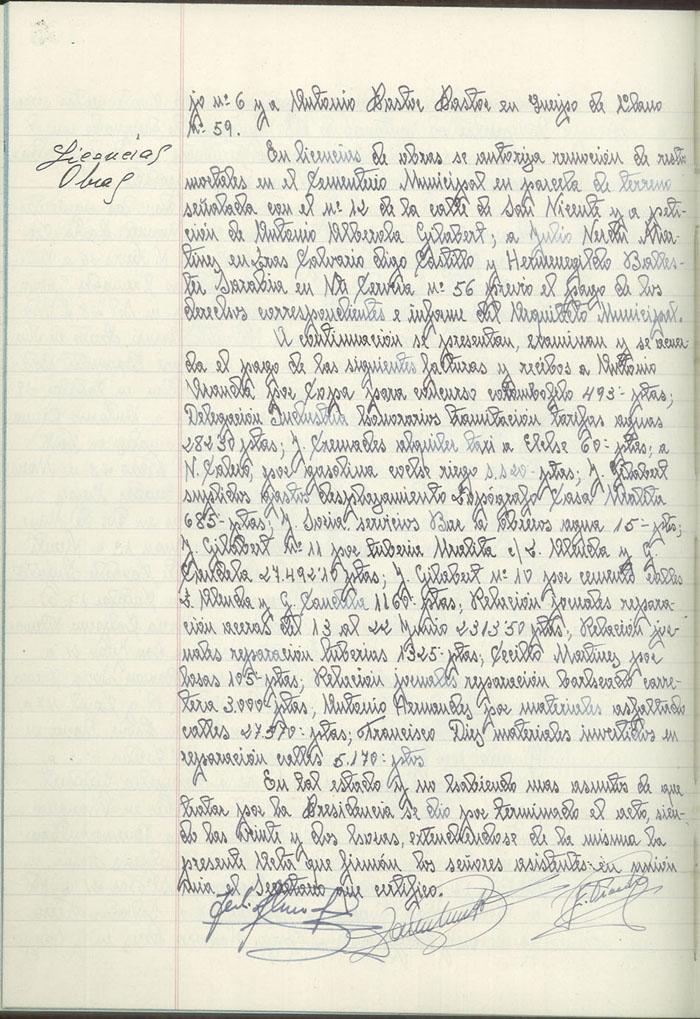 jo nº 6 y a Antonio Pastor Pastor en Queipo de Llano
nº 59.
Licencias
Obras
En licencias de obras se autoriza remoción de restos
mortales en el Cementerio Municipal en parcela de terreno
señalada con el nº 12 de la calle de San Vicente y a peti-
ción de Antonio Alberola Gilabert; a Julio Nerthi Mar-
tinez en Calvario digo Castillo y Hermenegildo Balles-
ter Sarabia en Nti Cervia nº 56 previo el pago de los
derechos correspondientes e informe del Arquitecto Municipal.
A continuación se presentan, examinan y se acuer-
da el pago de las siguientes facturas y recibos a Antonio
Aranda por Copa para concurso colombofilo 493'- ptas;
Delegación Industria honorarios tramitación tarifas aguas
ptas; J. Cremades alquiler taxi a Elche 60- ptas; a
N. Calero, por gasolina coche riego ptas; J. Gilabert
suplidos gastos desplazamiento Topógrafo Casa Uralita
685- ptas; J. Soria servicios Bar a obreros agua 15- ptas;
J. Gilabert nº 11 por tuberia Uralita c/ L. Alenda y G.
27.492'10 ptas; J. Gilabert nº 10 por cemento calles
L. Alenda y G. 1160- ptas; Relación jornales repara-
ción aceras del 13 al 22 Junio 2313'50 ptas, Relación jor-
nales reparación tuberias 1325- ptas; Cecilio Martinez por
losas 105- ptas; Relación jornales reparación carre-
tera 3.000- ptas, Antonio Hernandez por materiales asfaltado
calles ptas; Francisco Diez materiales invertidos en
reparación calles 5.170- ptas
En tal estado y no habiendo mas asuntos de que
tratar por la Presidencia se dio por terminado el acto, sien-
do las veinte y dos horas, extendiendose de la misma la
presente Acta que firman los señores asistentes en unión
mia el Secretario que certifico.